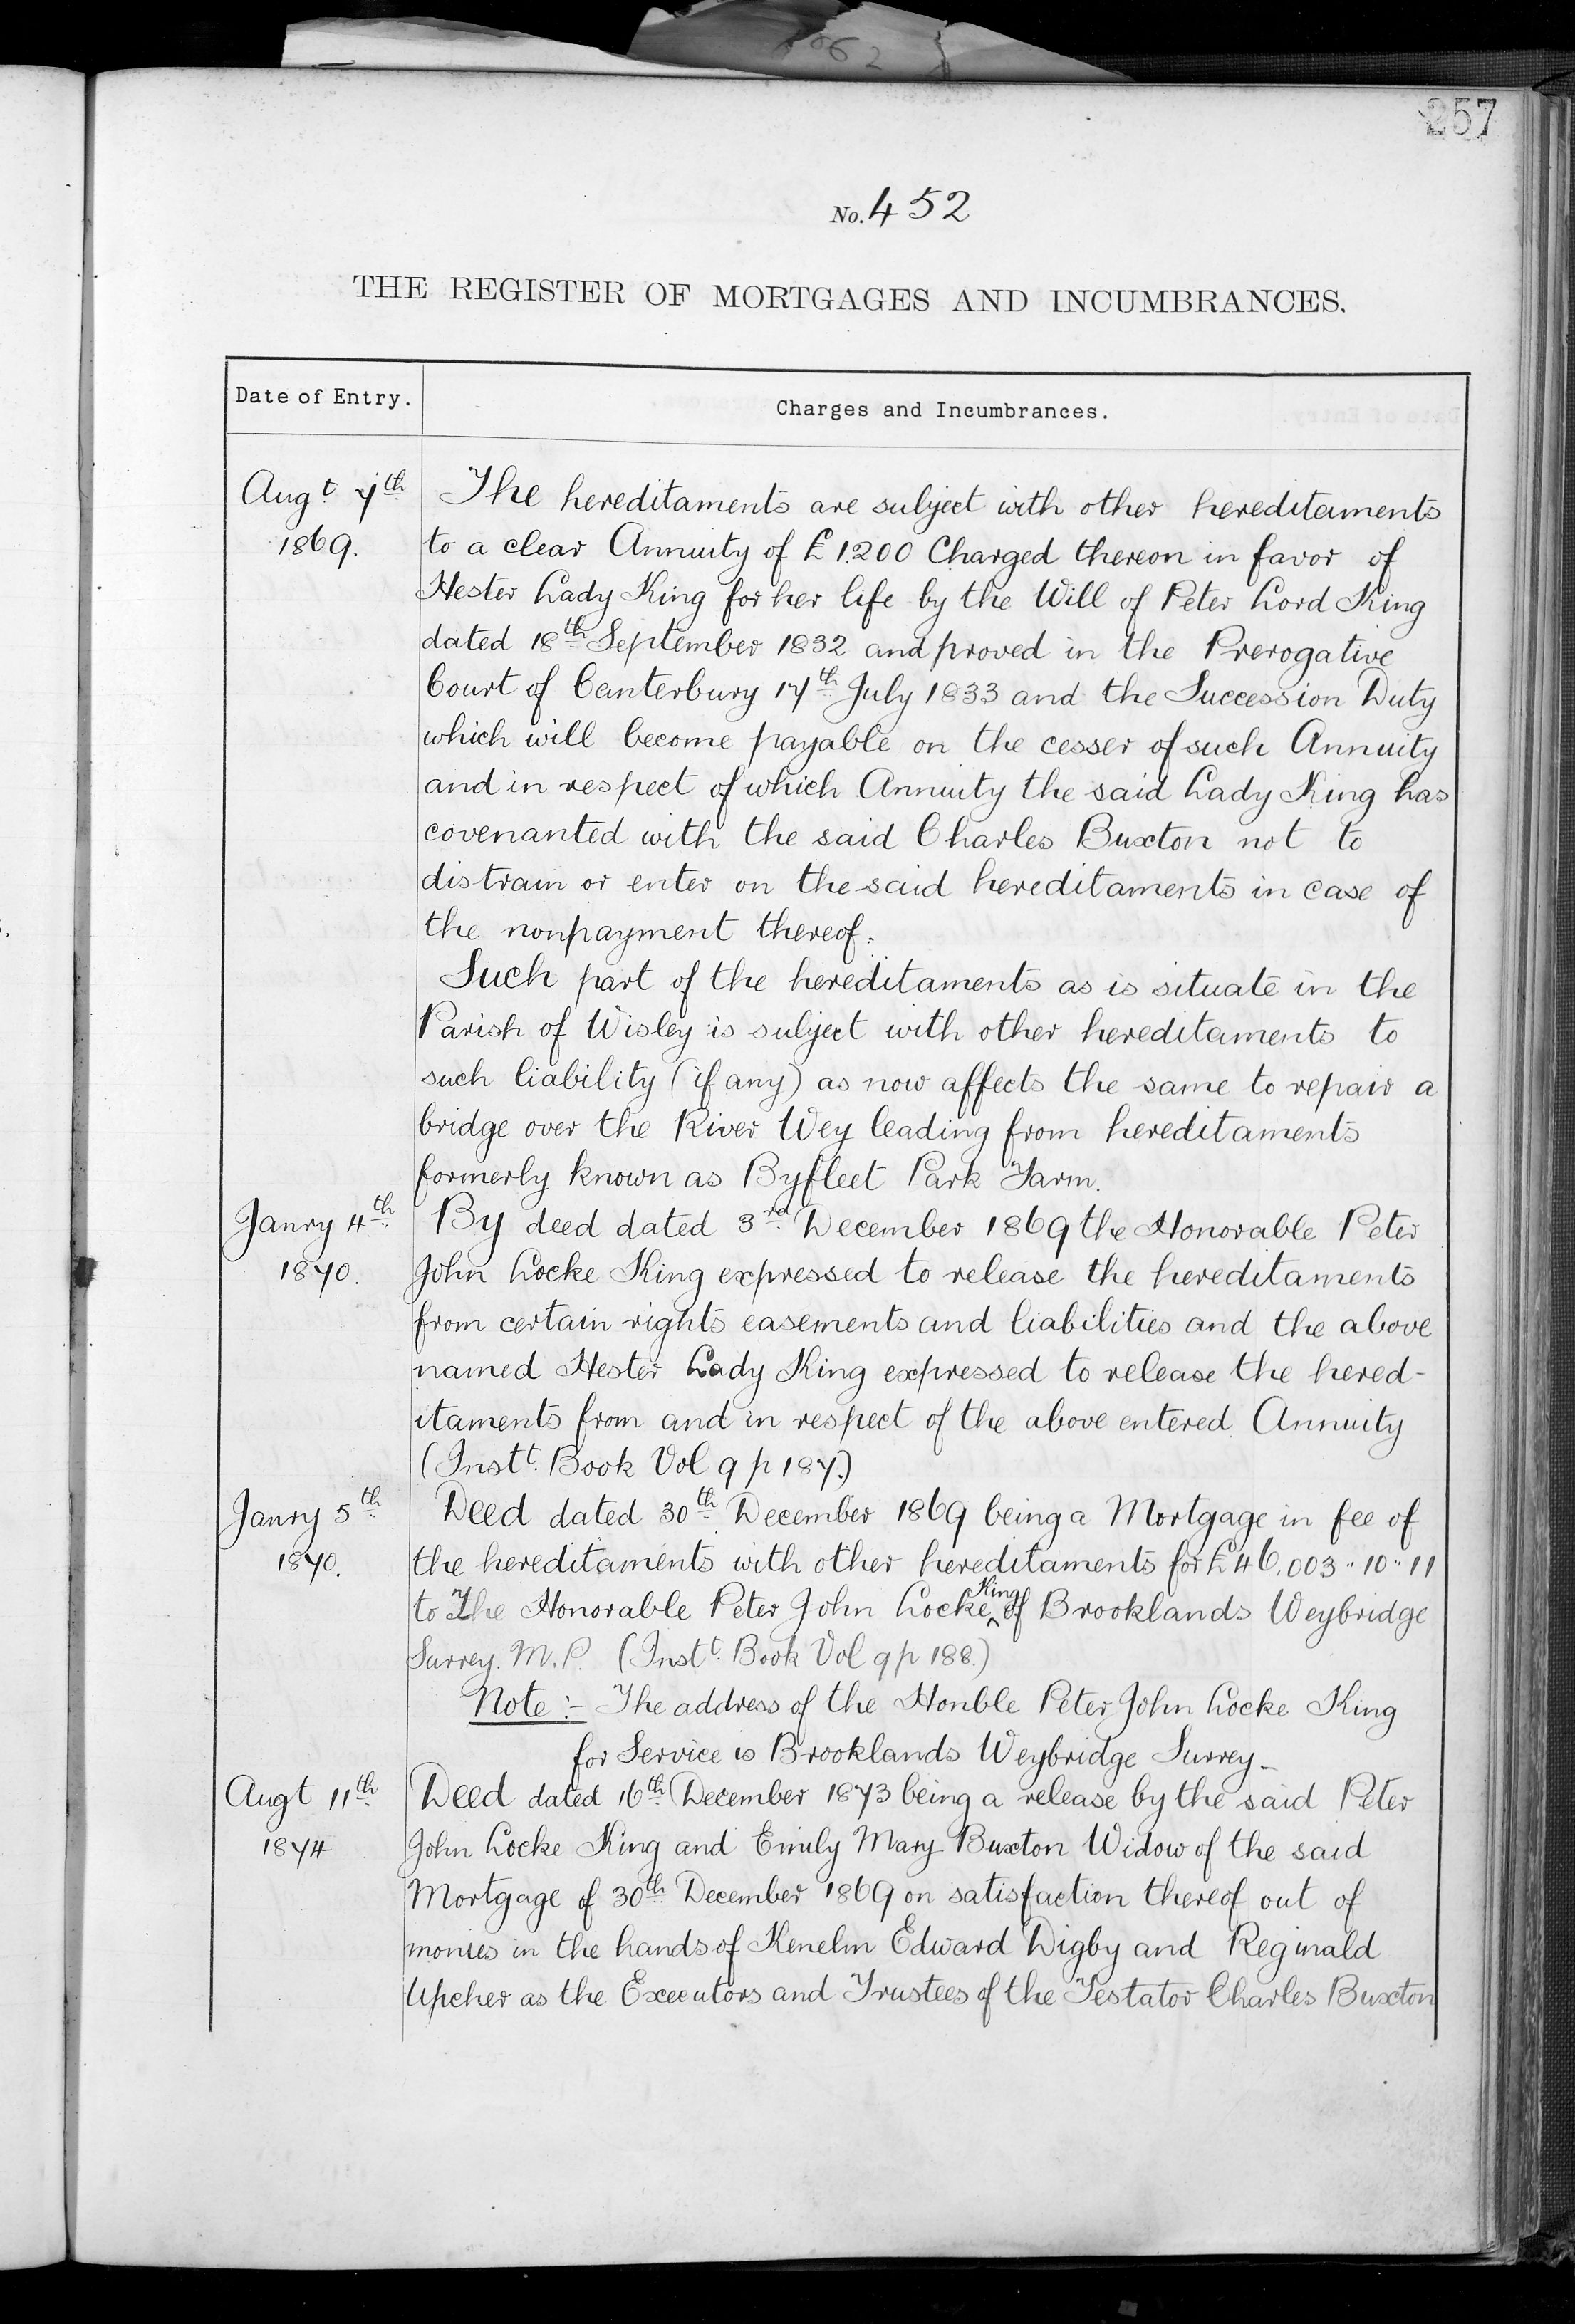 257
No. 452
THE REGISTER OF MORTGAGES AND INCUMBRANCES.
Date of Entry.
Charges and Incumbrances.
Augt 7th
1869.
The hereditaments are subject with other hereditaments
to a clear Annuity of £1.200 Charged thereon in favor of
Hester Lady King for her life by the Will of Peter Lord King
dated 18th September 1832 and proved in the Prerogative
Court of Canterbury 17th July 1833 and the Succession Duty
which will become payable on the cesser of such Annuity
and in respect of which Annuity the said Lady King has
covenanted with the said Charles Buxton not to
distrain or enter on the said hereditaments in case of
the nonpayment thereof.
Such part of the hereditaments as is situate in the
Parish of Wisley is subject with other hereditaments to
such liability (if any) as now affects the same to repair a
bridge over the River Wey leading from hereditaments
formerly known as Byfleet Park Farm.
Janry 4th
1870.
By deed dated 3rd December 1869 the Honorable Peter
John Locke King expressed to release the hereditaments
from certain rights easements and liabilities and the above
named Hester Lady King expressed to release the hered-
itaments from and in respect of the above entered Annuity
(Instt. Book Vol 9 p 187.)
Janry 5th
1870.
Deed dated 30th December 1869 being a Mortgage in fee of
the hereditaments with other hereditaments for £46,003 " 10 " 11
to The Honorable Peter John Locke King of Brooklands Weybridge
Surrey. M.P. (Instt. Book Vol 9 p 188.)
Note :- The address of the Honble Peter John Locke King
for Service is Brooklands Weybridge Surrey -
Augt 11th
1874
Deed dated 16th December 1873 being a release by the said Peter
John Locke King and Emily Mary Buxton Widow of the said
Mortgage of 30th December 1869 on satisfaction thereof out of
monies in the hands of Kenelm Edward Digby and Reginald
Upcher as the Executors and Trustees of the Testator Charles Buxton